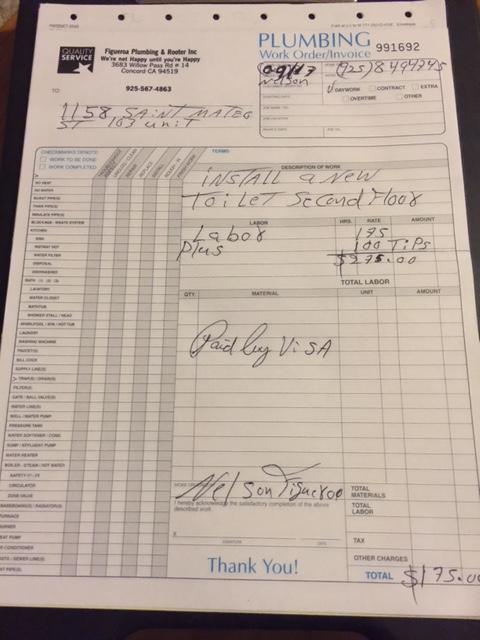 QUALITY
SERVICE
Figueroa Plumbing & Rooter Inc
We're not Happy until you're Happy
3683 Willow Pass Rd # 14
Concord CA 94519
925-567-4863
PLUMBING
Work Order/Invoice 991692
Nelson
DAYWORK CONTRACT EXTRA
OVERTIME OTHER
TO:
1158 SAINT MATEO
ST 103 unit
CHECKMARKS DENOTE:
WORK TO BE DONE
WORK COMPLETED
TERMS
DESCRIPTION OF WORK
INSTALL a New
ToiLET Second Floor
LABOR HRS. RATE AMOUNT
Labor 175
plus 100 TiPs
$275.00
TOTAL LABOR
QTY. MATERIAL UNIT AMOUNT
Paid by ViSA
NO HEAT
NO WATER
BURST PIPE(S)
THAW PIPE(S)
INSULATE PIPE(S)
BLOCKAGE - WASTE SYSTEM
KITCHEN
SINK
INSTANT HOT
WATER FILTER
DISPOSAL
DISHWASHER
BATH (1) (2) (3)
LAVATORY
WATER CLOSET
BATHTUB
SHOWER STALL / HEAD
WHIRLPOOL / SPA / HOT TUB
LAUNDRY
WASHING MACHINE
FAUCET(S)
SILL COCK
SUPPLY LINE(S)
TRAP(S) / DRAIN(S)
FILTER(S)
GATE / BALL VALVE(S)
WATER LINE(S)
WELL / WATER PUMP
PRESSURE TANK
WATER SOFTENER / COND.
SUMP / EFFLUENT PUMP
WATER HEATER
BOILER - STEAM / HOT WATER
CIRCULATOR
ZONE VALVE
Nelson Figueroa
I hereby acknowledge the satisfactory completion of the above
described work.
X
SIGNATURE DATE
TOTAL
MATERIALS
TOTAL
LABOR
TAX
OTHER CHARGES
Thank You!
TOTAL $175.00